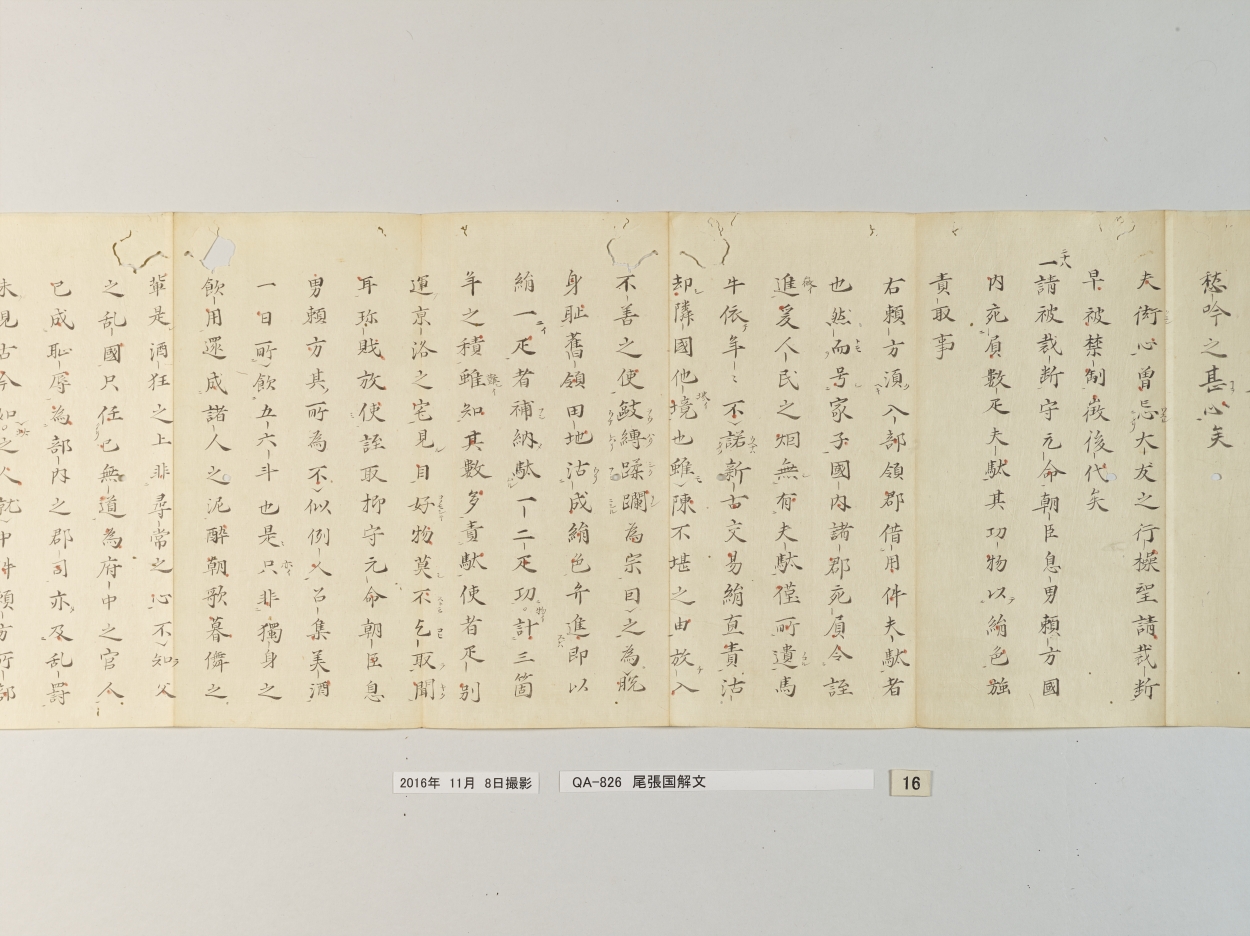 愁吟之甚心矣
夫街心曽忘大友之行操望請裁断
早被禁制被後代矣
一請被裁断守元命朝臣息男頼方國
内宛負數疋夫駄其功物以絹色強
責取事
右頼方湏入部領郡借用件夫駄者
也然而号家子國内諸郡宛負令誣
進爰人民之烟無有夫駄僅所遺馬
牛依年〻不諾新古交易絹直責沽
却隣國他境也雖陳不堪之由放入
不善之使皷縛蹂躙為宗因之為脱
身耻舊領田地沽成絹色弁進即以
絹一疋者補納駄一二疋功計三箇
年之積雖知其數多責駄使者疋別
運京洛之宅見目好物莫不乞取聞
耳珎賎放使誣取抑守元命朝臣息
男頼方其所為不似例人召集美酒
一日所飲五六斗也是只非獨身之
飲用還成諸人之泥酔朝歌暮儛之
輩是酒狂之上非尋常之心不知父
之乱國只任已無道為府中之官人
已成恥辱為部内之郡司亦及乱罸
未見古今如之人就中件頼方所部
2016年 11月 8日撮影
QA-826 尾張国解文
16